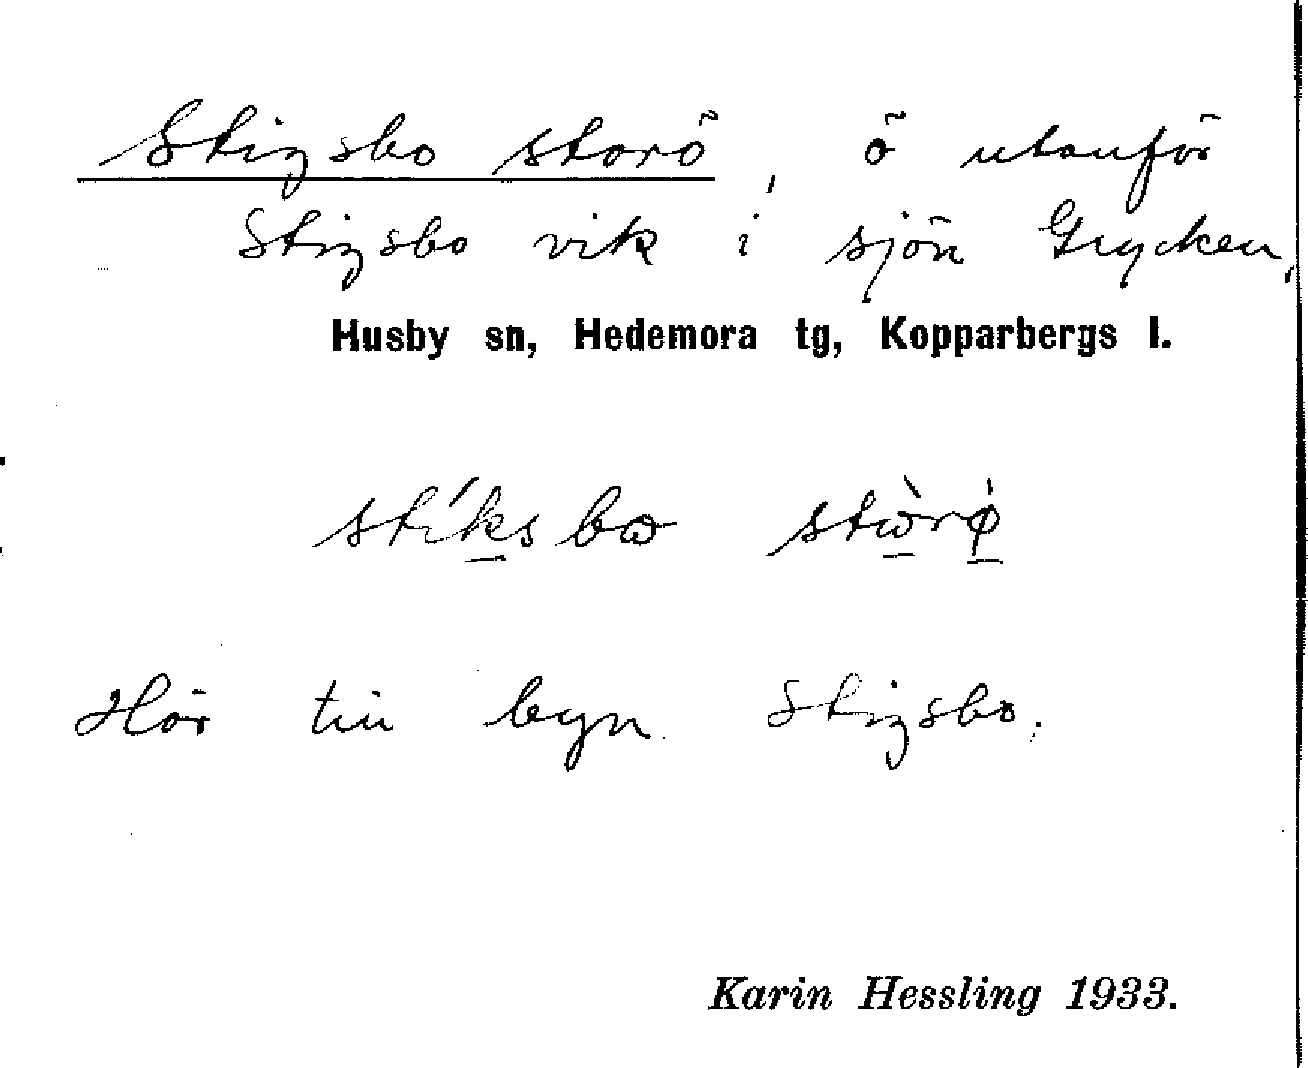 Stigsbo storö, ö utanför
Stigsbo vik i sjön Grycken,
Husby sn, Hedemora tg, Kopparbergs l.
stíksbɷ stɷ̀rø̀
Hör till byn Stigsbo.
Karin Hessling 1933.